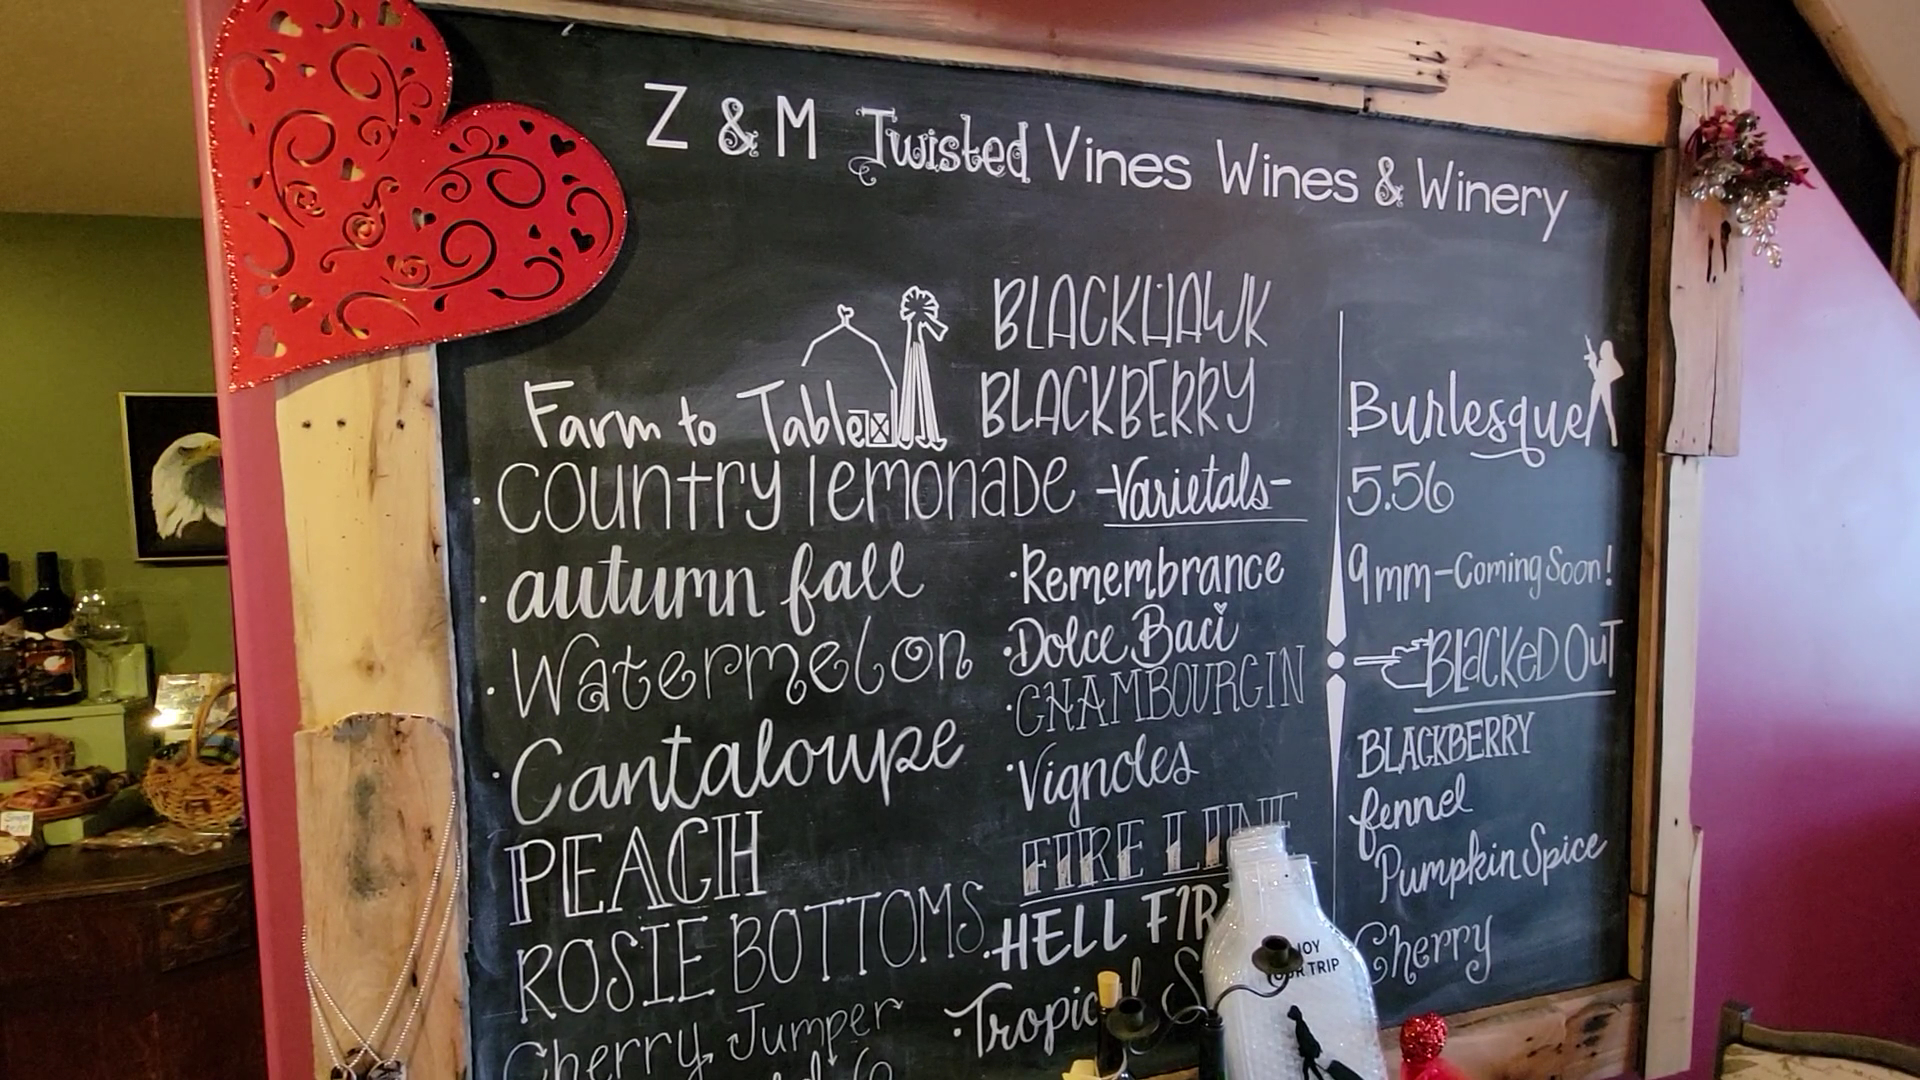 Z & M Twisted Vines Wines & Winery
Farm to Table
· Country lemonade
· autumn fall
· Watermelon
· Cantaloupe
PEACH
ROSIE BOTTOMS
Cherry Jumper
BLACKHAWK
BLACKBERRY
-Varietals-
·Remembrance
·Dolce Baci
·CHAMBOURCIN
·Vignoles
FIRE LINE
·HELL FIR
·Tropic
Burlesque
5.56
9mm-Coming Soon!
BLACKED OUT
BLACKBERRY
fennel
Pumpkin Spice
Cherry
JOY
OUR TRIP